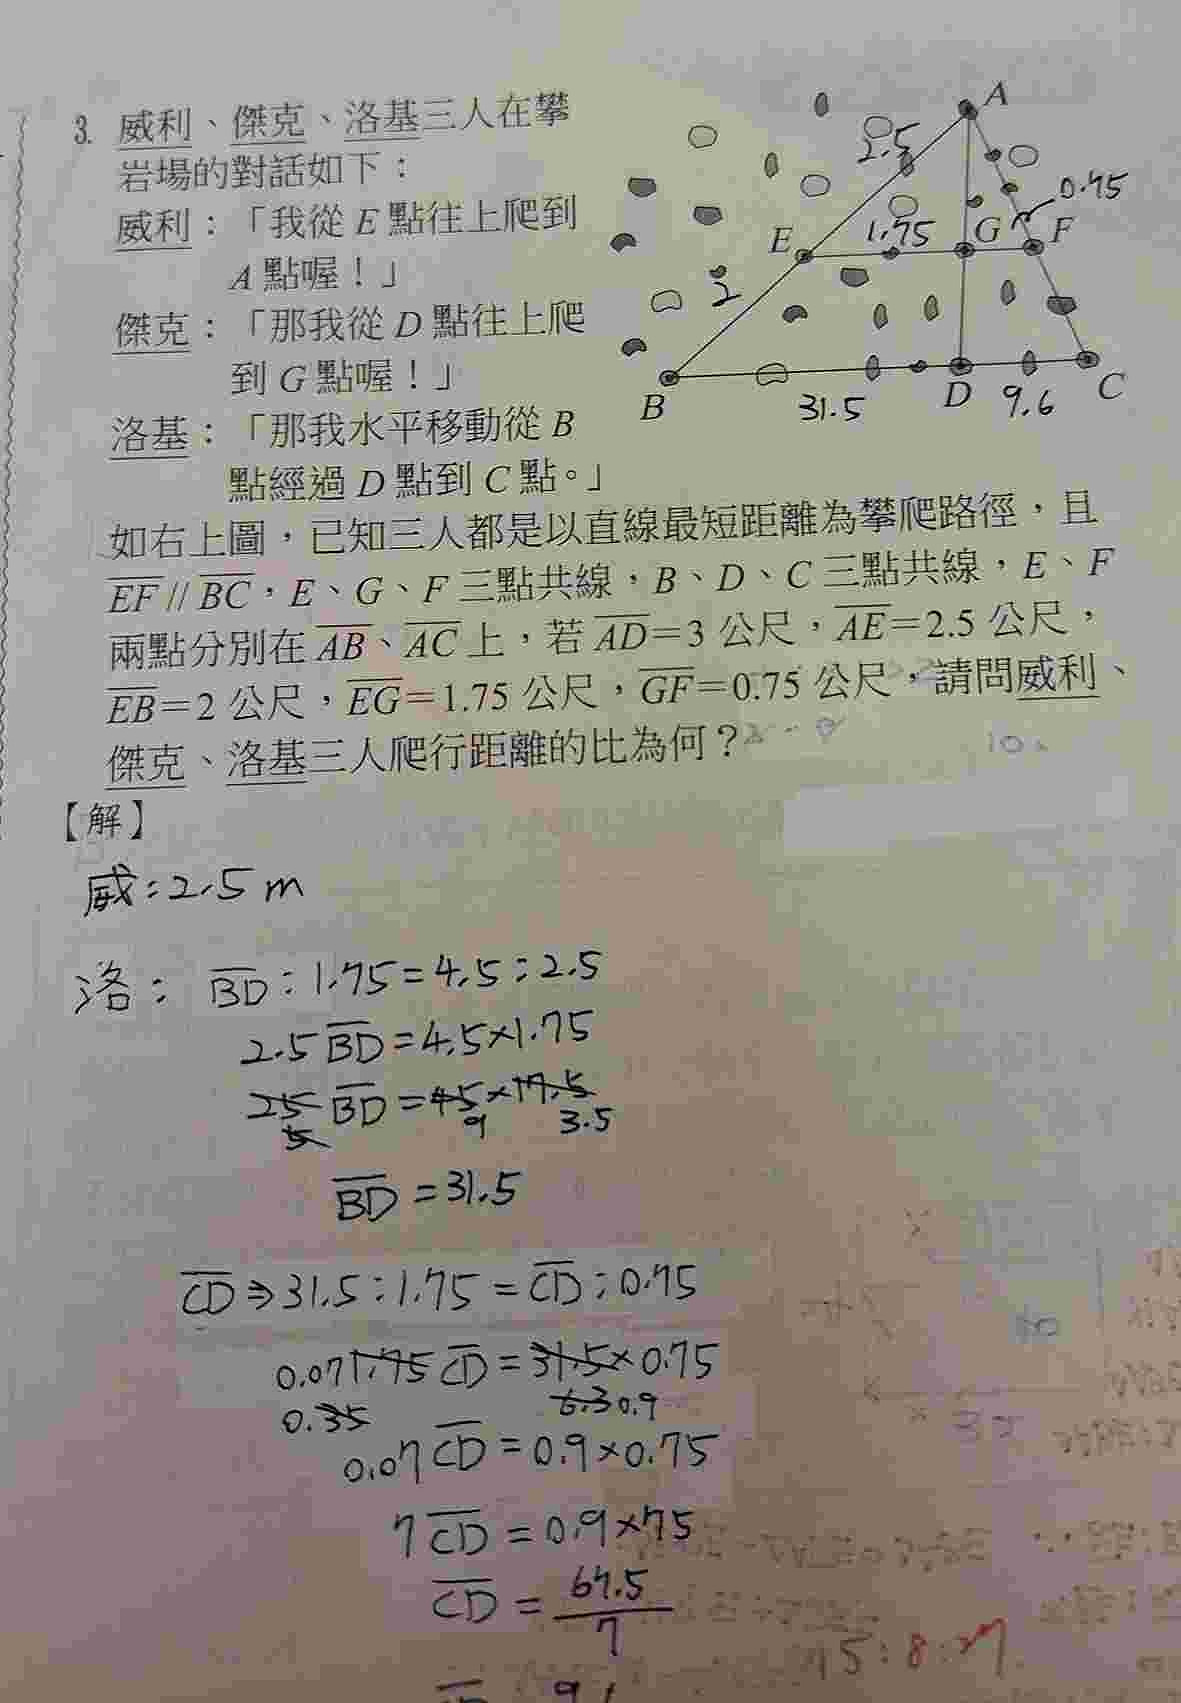 3. 威利、傑克、洛基三人在攀
岩場的對話如下：
威利：「我從E點往上爬到
A點喔！」
傑克：「那我從D點往上爬
到G點喔！」
洛基：「那我水平移動從B
點經過D點到C點。」
A
2.5
0.75
E
1.75
G
F
2
B
31.5
D
9.6
C
如右上圖，已知三人都是以直線最短距離為攀爬路徑，且
EF // BC，E、G、F三點共線，B、D、C三點共線，E、F
兩點分別在AB、AC上，若AD=3公尺，AE=2.5公尺，
EB=2公尺，EG=1.75公尺，GF=0.75公尺，請問威利、
傑克、洛基三人爬行距離的比為何？
【解】
威：2.5 m
洛： BD：1.75=4.5：2.5
2.5BD=4.5×1.75
25BD=45×17.5
5 9 3.5
BD=31.5
CD⇒31.5：1.75=CD：0.75
0.07 1.75 CD=31.5×0.75
0.35 6.3 0.9
0.07 CD=0.9×0.75
7 CD=0.9×75
CD=67.5/7
15:8:27